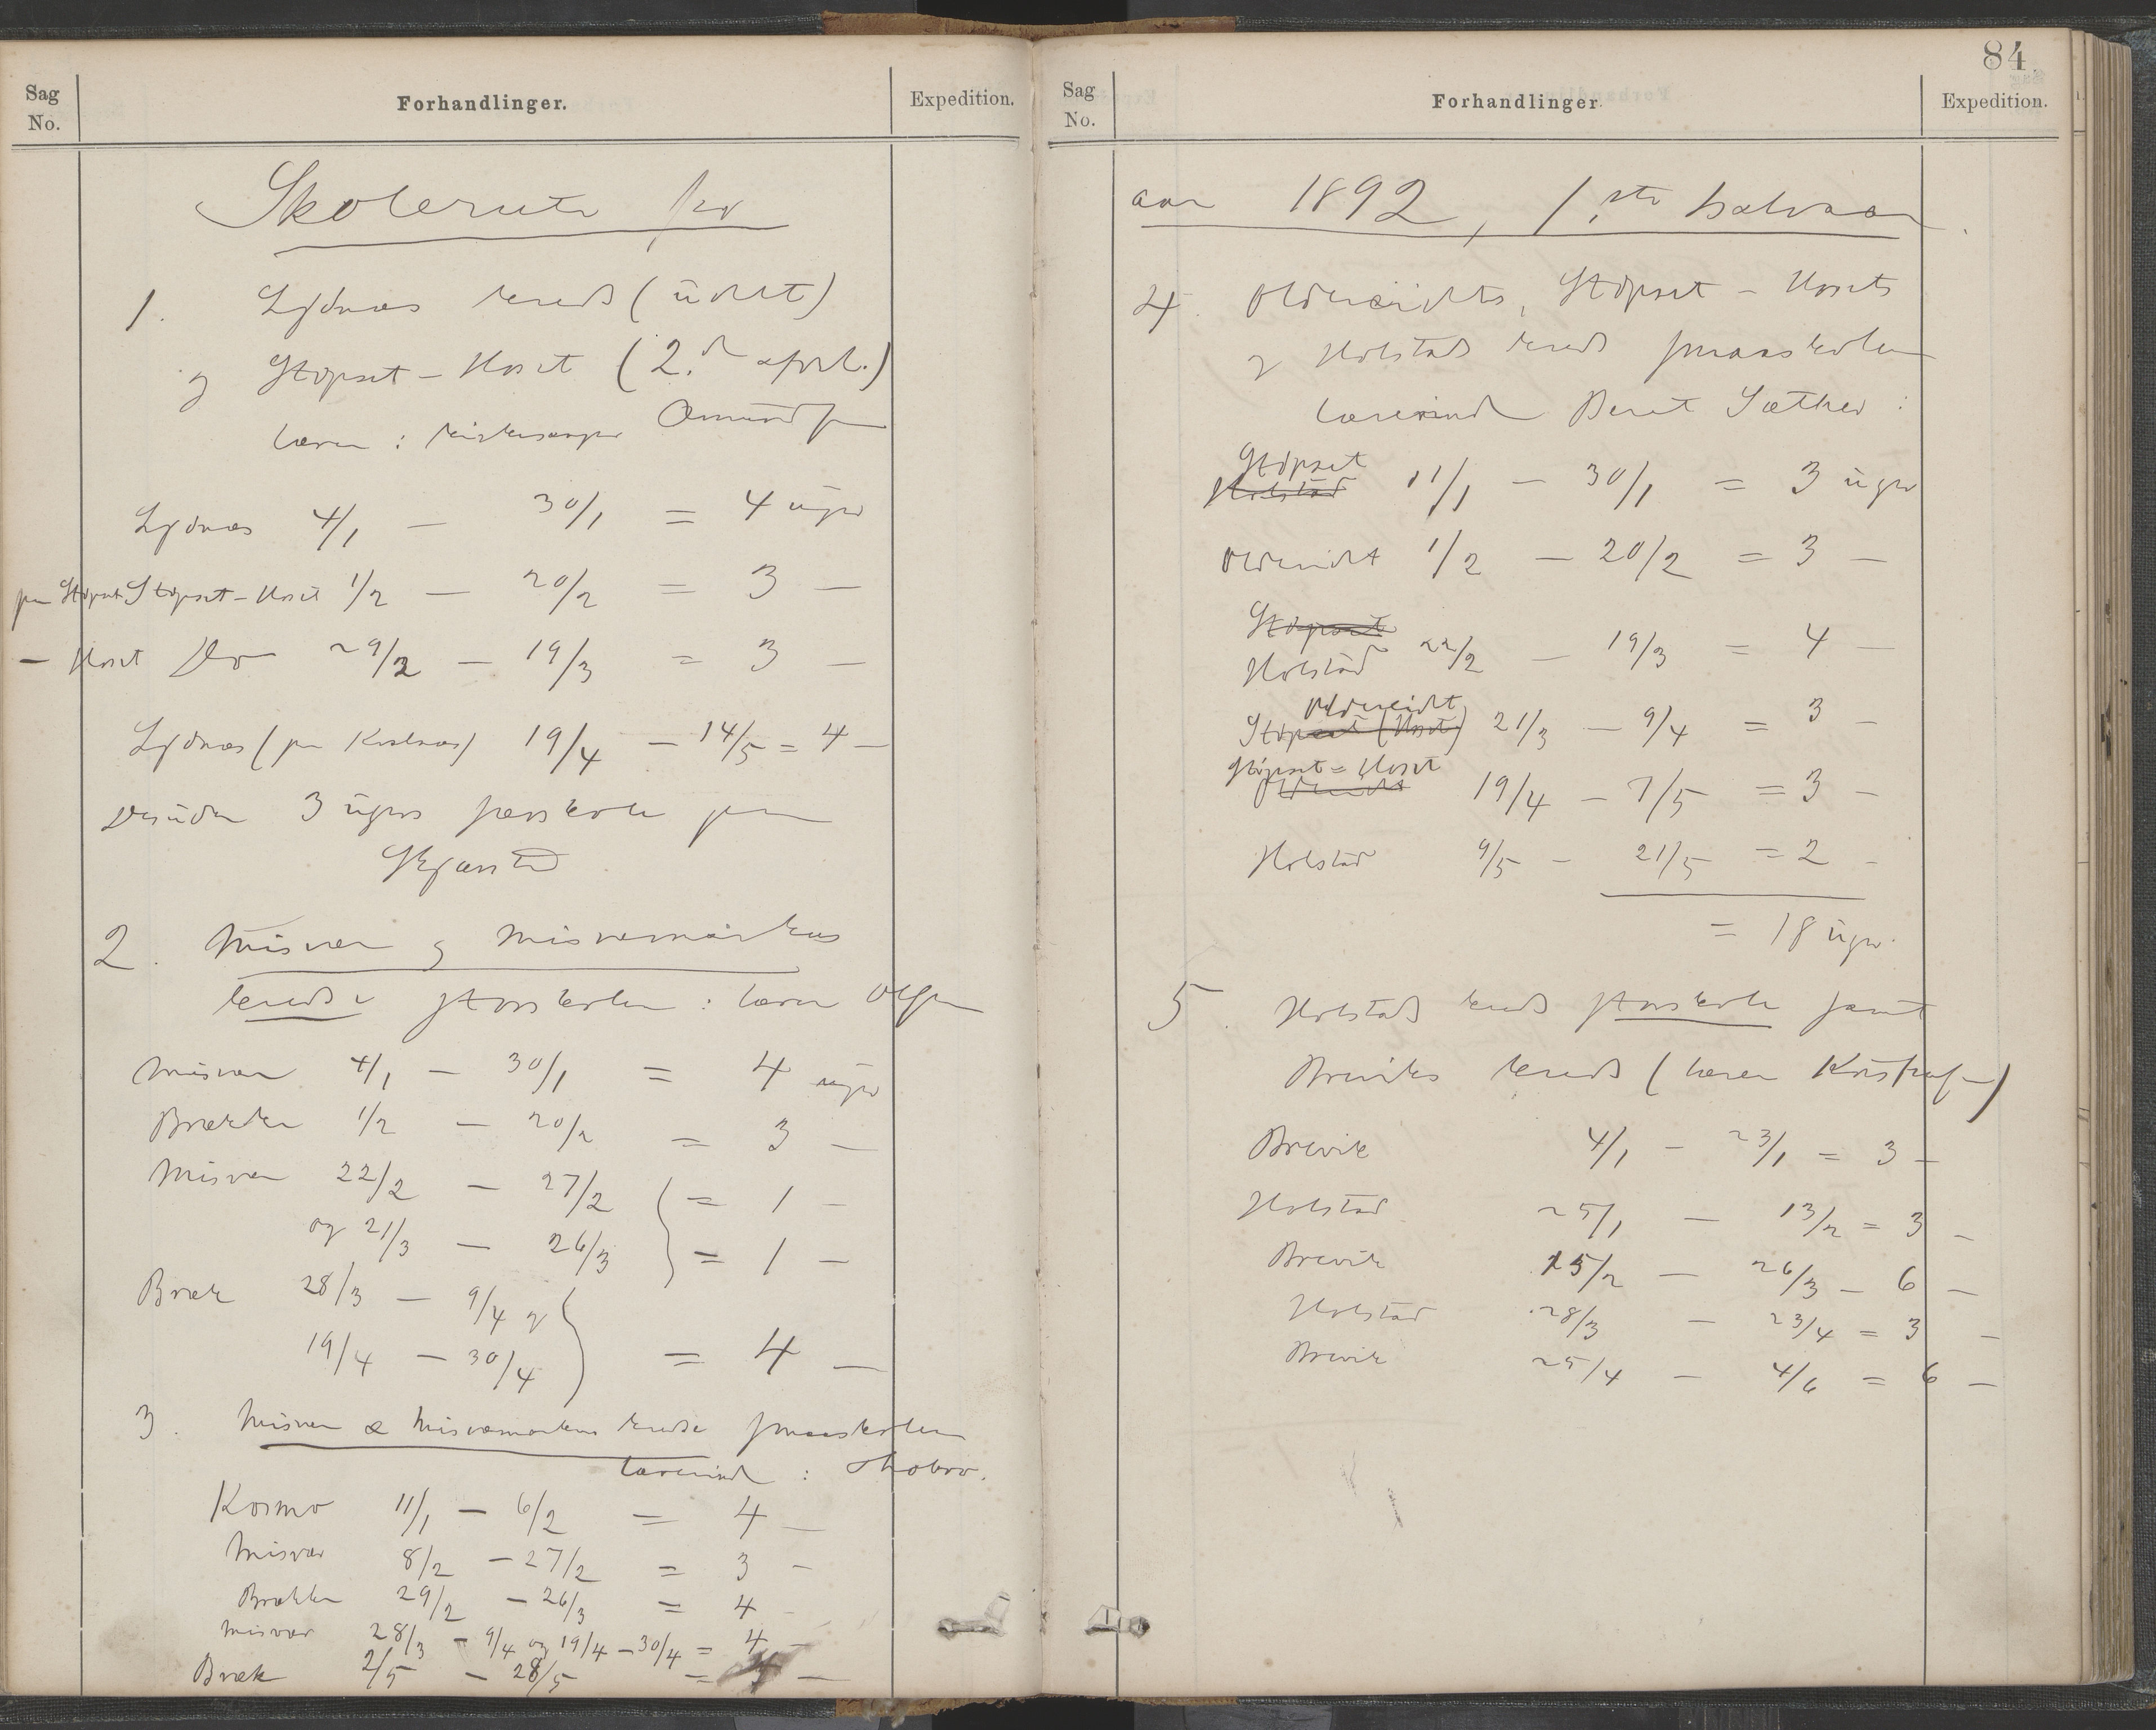 Sag No.
Forhandlinger.
Expedition.
Skolerute for
1. Lydnæs kreds (udelt)
og Støpset - Hoset (2.d afdl.)
lærer: kirkesanger Amundsen
Lydnæs 4/1 — 30/1 = 4 uger
paa Støpset Støpset - Hoset 1/2 — 20/2 = 3 —
— Hoset Do 29/2 — 19/3 = 3 —
Lydnæs (paa Kodnæs) 19/4 — 14/5 = 4 —
Desuden 3 ugers skole paa
Skjærstad
2. Misvær og Misværmarkens
kredse storskolen: lærer Olsen
Misvær 4/1 — 30/1 = 4 uger
Brækken 1/2 — 20/2 = 3 —
Misvær 22/2 — 27/2 = 1 —
og 21/3 — 26/3 = 1 —
Bræk 28/3 — 9/4 og
19/4 — 30/4 = 4 —
3. Misvær & Misværmarkens kredse smaaskolen
lærerinde:
Kosmo 11/1 — 6/2 = 4 —
Misvær 8/2 — 27/2 = 3 —
Brækken 29/2 — 26/3 = 4 -
Misvær 28/3 - 9/4 og 19/4 - 30/4 = 4 -
Bræk 2/5 — 28/5 = 4 —
84.
Sag No.
Forhandlinger.
Expedition.
aar 1892, 1.ste halvaar.
4. Oldereidets, Støpset - Hosets
og Holstad kreds smaaskolen
lærerinde Beret Sæther:
Støpset
Holstad 11/1 — 30/1 = 3 uger
Oldereidet 1/2 — 20/2 = 3 —
Støpset
Holstad 22/2 — 19/3 = 4 —
Oldereidet
Støpset (Hoset) 21/3 — 9/4 = 3 —
Støpset = Hoset
Oldereidet 19/4 — 7/5 = 3 -
Holstad 9/5 - 21/5 = 2 -
= 18 uger.
5. Holstads kreds storskole samt
Breviks kreds (lærer Kristensen)
Brevik 4/1 - 23/1 = 3 -
Holstad 25/1 — 13/2 = 3 -
Brevik 15/2 — 26/3 - 6 -
Holstad 28/3 — 23/4 = 3 -
Brevik 25/4 — 4/6 = 6 —